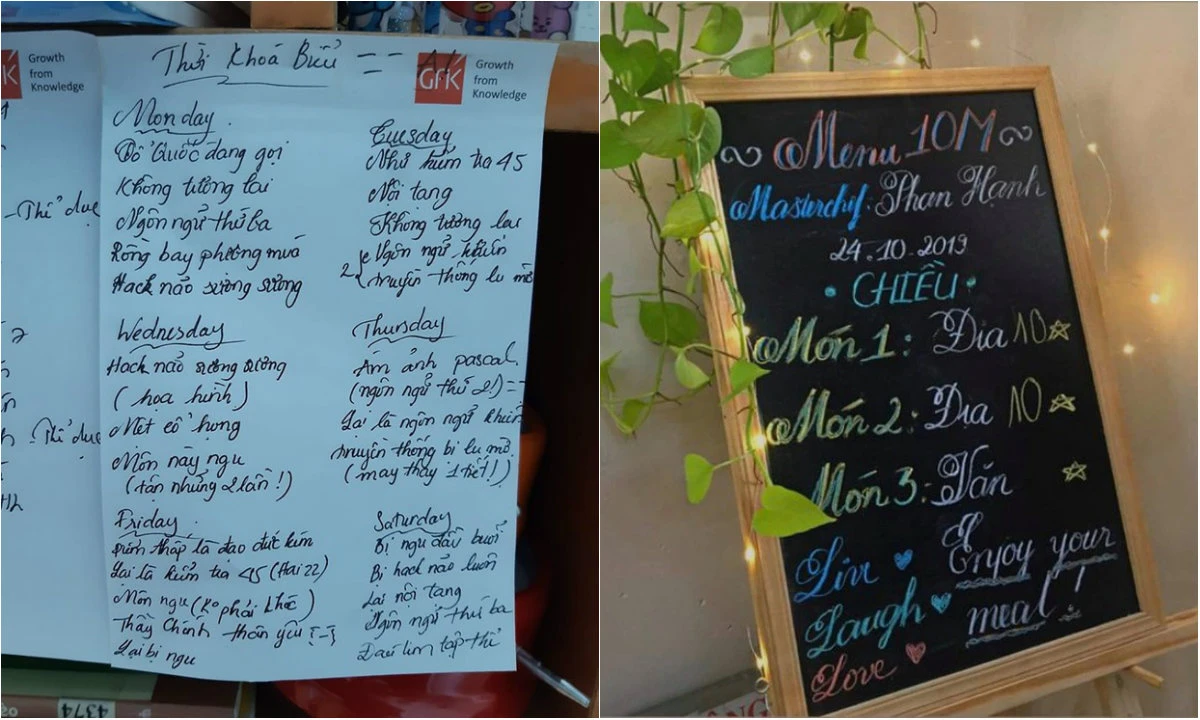 Thời Khoá Biểu == A1
GfK
Growth
from
Knowledge
GfK
Growth
from
Knowledge
- Thể dục
- Thể dục
Monday.
Tổ Quốc đang gọi
Không tương lai
Ngôn ngữ thứ ba
Rồng bay phượng múa
Hack não sương sương
Tuesday
Như kiểm tra 45
Nội tạng
Không tương lai
2 Ngôn ngữ khiến
truyền thống lu mờ
Wednesday
Hack não sương sương
(họa hình)
Mệt cổ họng
Môn này ngu
(tận những 2 lần!)
Thursday
Ám ảnh pascal
(ngôn ngữ thứ 2!) ==
Lại là ngôn ngữ khiến
truyền thống bị lu mờ.
(may thay 1 tiết!)
Friday.
thấp là đạo đức kém
Lại là kiểm tra 45 (Hai 22)
Môn ngu (ko phải khóc)
Thầy Chính thân yêu T-T
Lại bị ngu
Saturday
Bị ngu đầu buổi
Bị hack não luôn
Lại nội tạng
Ngôn ngữ thứ ba
Đau tim tập thể
4374
Menu 10M
Masterchef: Phan Hạnh
24.10.2019
• CHIỀU •
Món 1: Địa 10
Món 2: Địa 10
Món 3: Văn
Live Enjoy your
Laugh meal!
Love